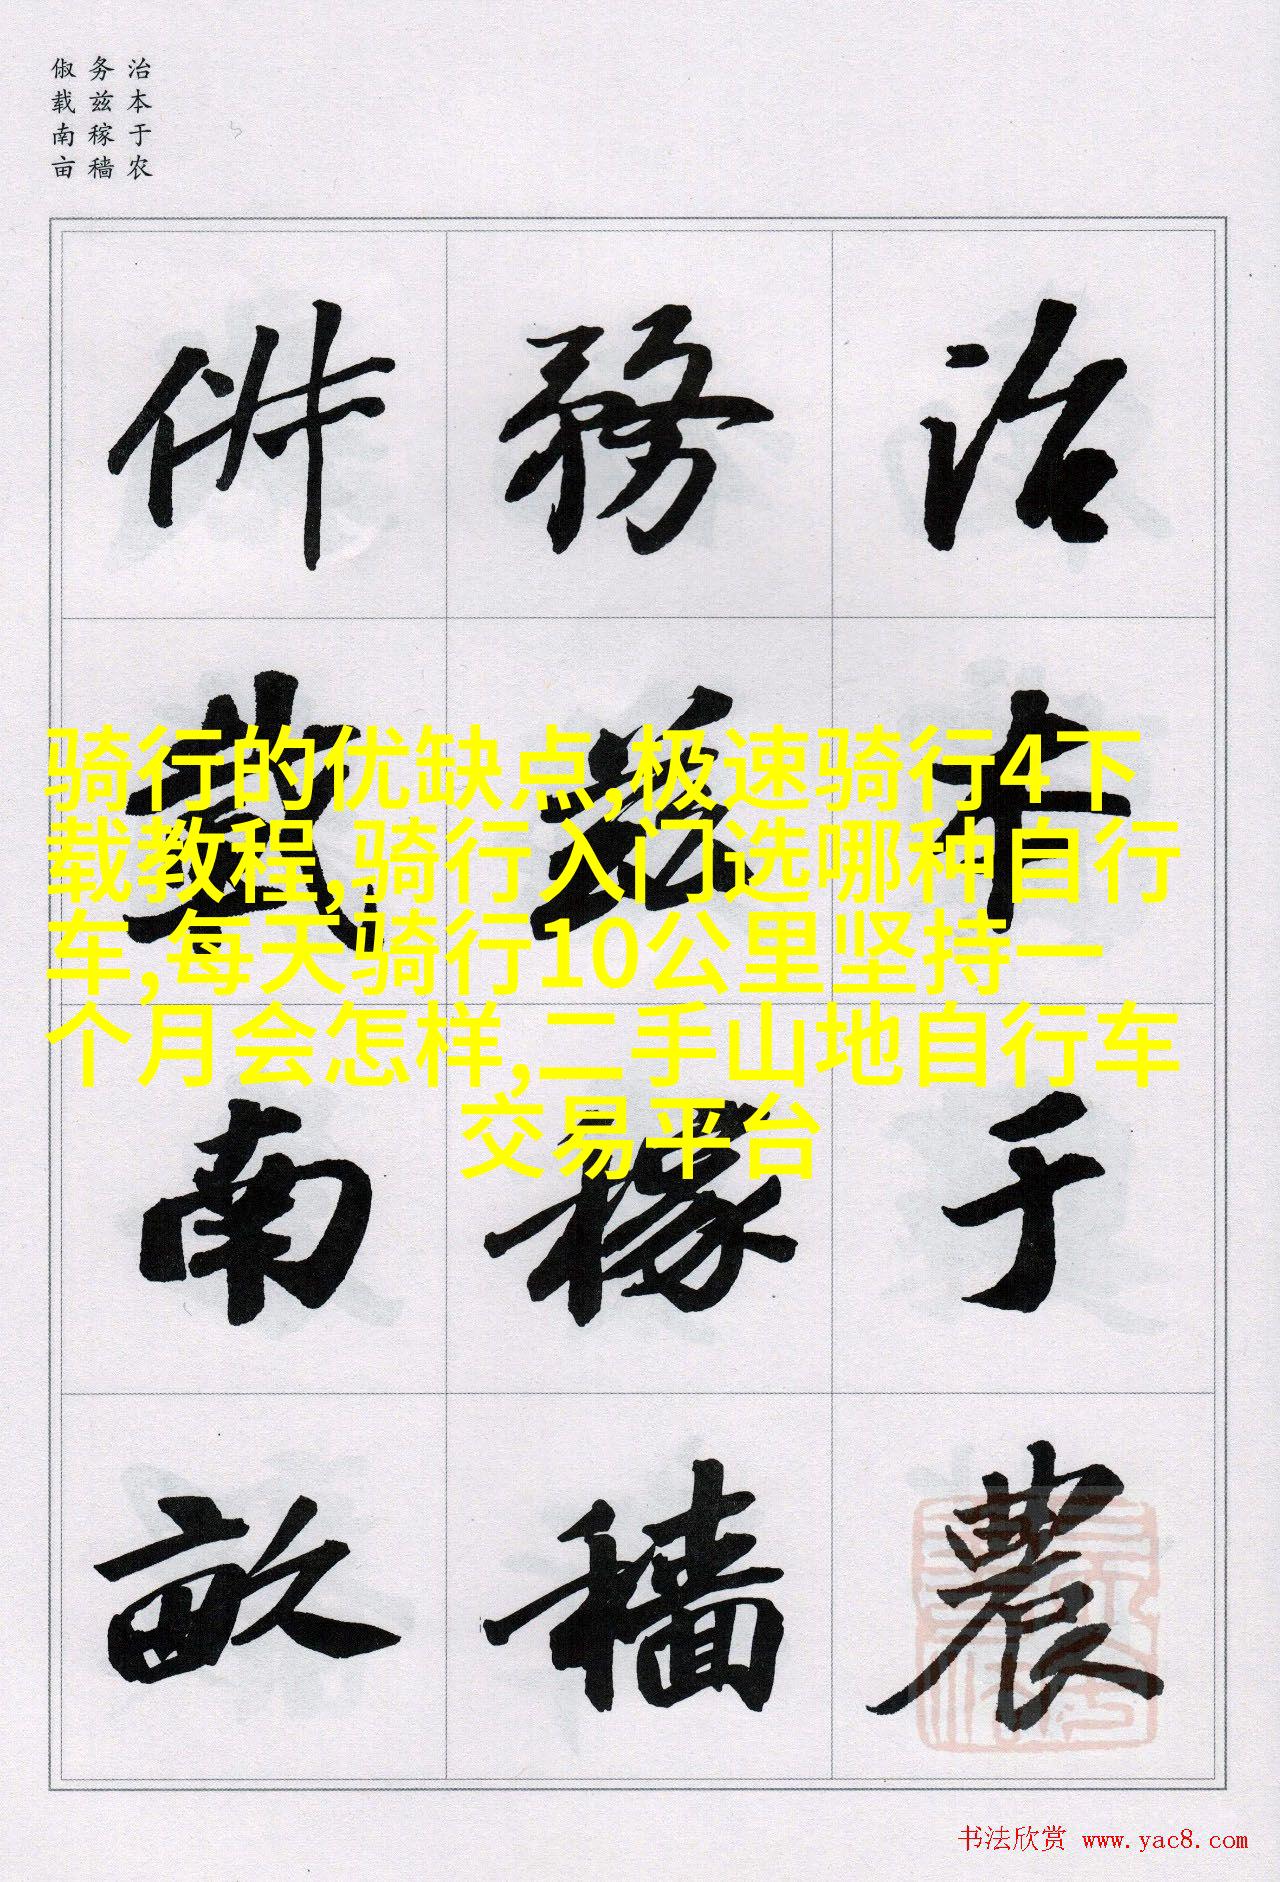 治本于农
务兹稼穑
俶载南亩
治本于農
務兹稼穡
俶載南畝
骑行的优缺点,极速骑行4下
载教程,骑行入门选哪种自行
车,每天骑行10公里坚持一
个月会怎样,二手山地自行车
交易平台
书法欣赏 www.yac8.com